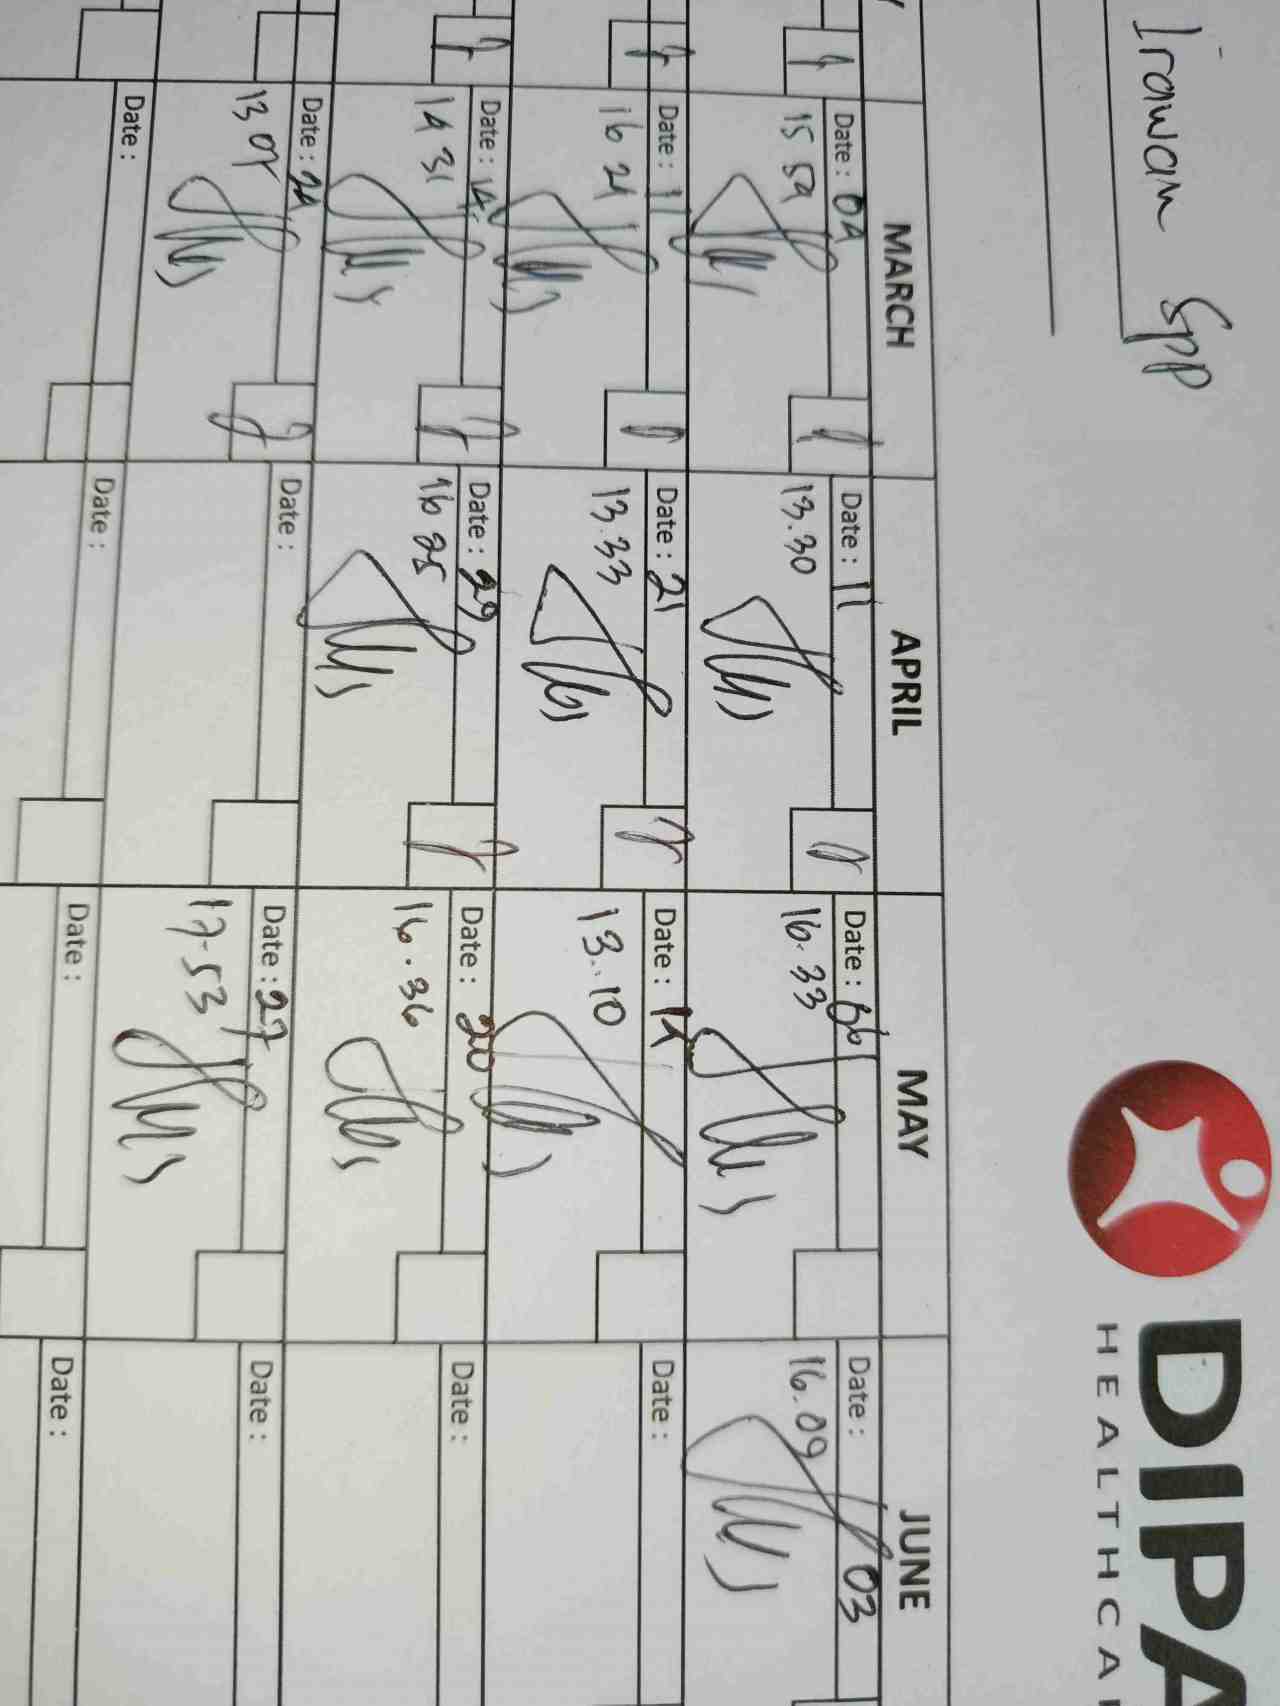 Irawan Spp
DIPA
HEALTHCA
MARCH
APRIL
MAY
JUNE
Date : 04
15 59
Date : 11
13.30
Date : 06
16.33
Date : 03
16.09
Date : 11
16 21
Date : 21
13.33
Date : 14
13.10
Date :
Date : 14
14 31
Date : 29
16 25
Date : 20
16.36
Date :
Date : 24
13 07
Date :
Date : 27
17-53
Date :
Date :
Date :
Date :
Date :